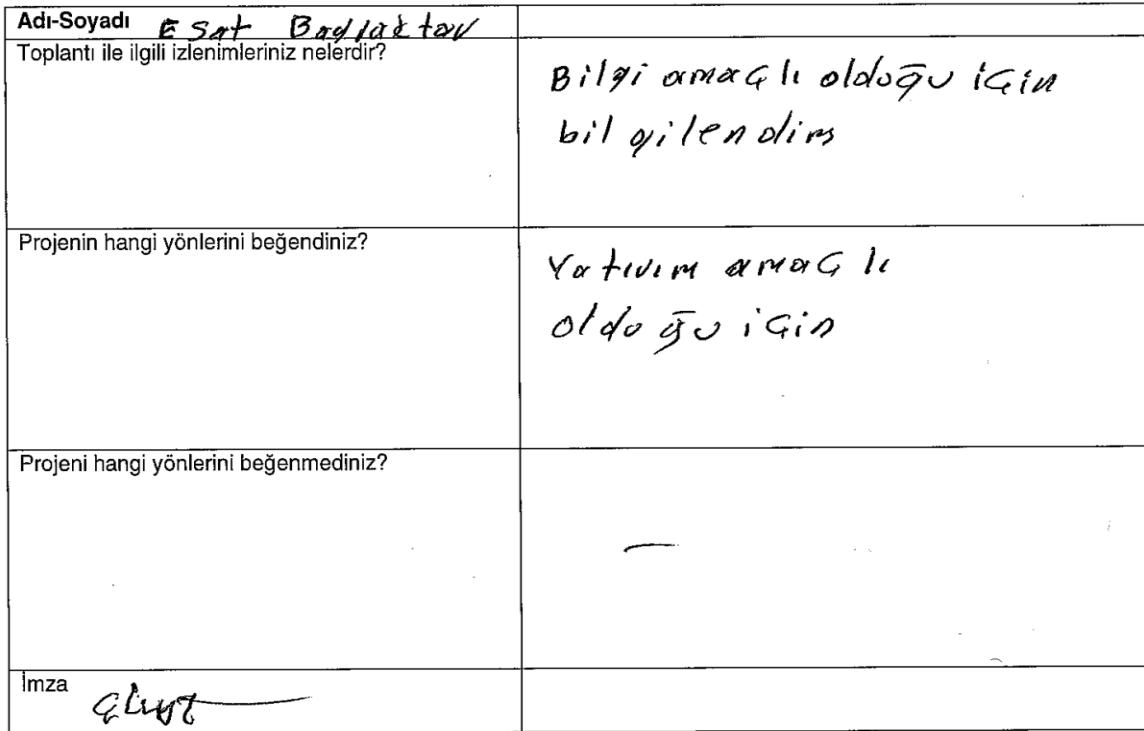 Adı-Soyadı Esat Baylaktar
Toplantı ile ilgili izlenimleriniz nelerdir?
Bilgi amaçlı olduğu için
bilgilendim
Projenin hangi yönlerini beğendiniz?
Yatırım amaçlı
olduğu için
Projeni hangi yönlerini beğenmediniz?
—
İmza